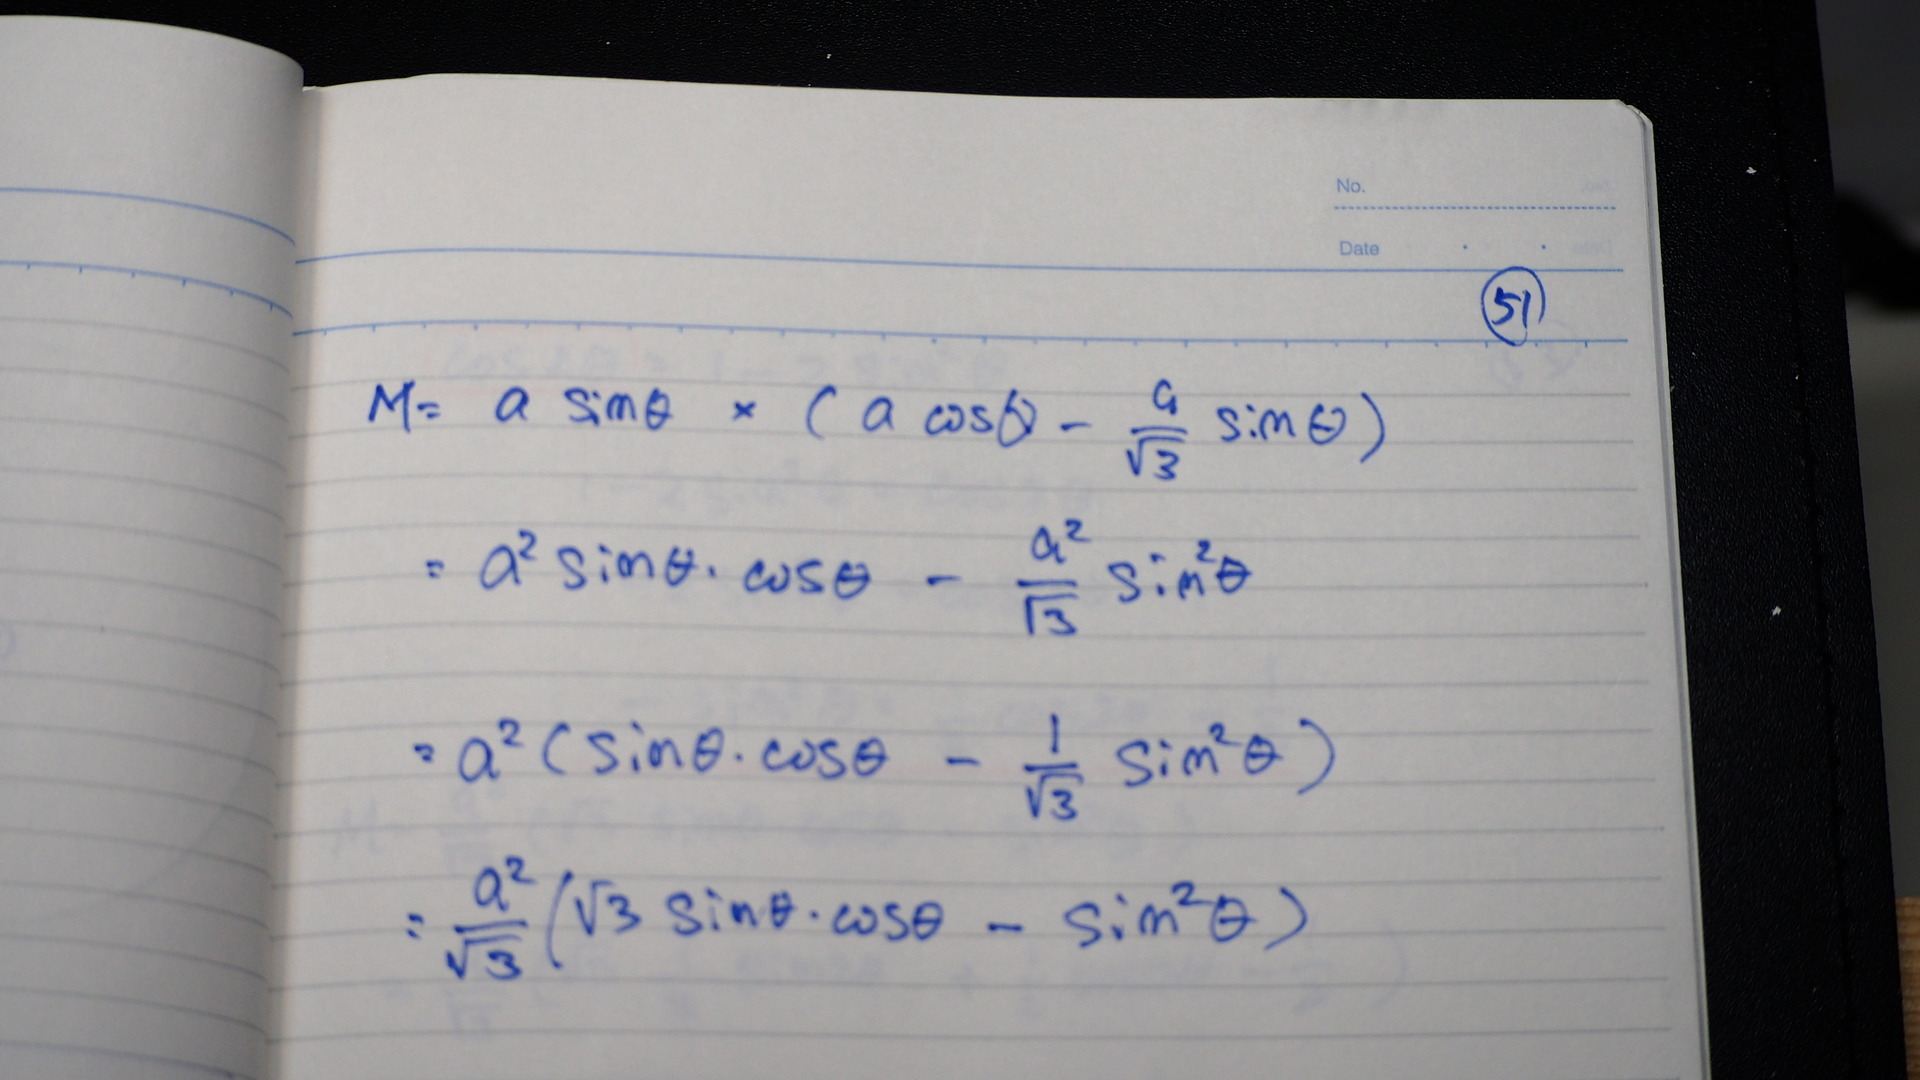 No.
Date
51
M= a sinθ × ( a cosθ - a/√3 sinθ )
= a² sinθ. cosθ - a²/√3 sin²θ
= a² ( sinθ. cosθ - 1/√3 sin²θ )
= a²/√3 ( √3 sinθ. cosθ - sin²θ )